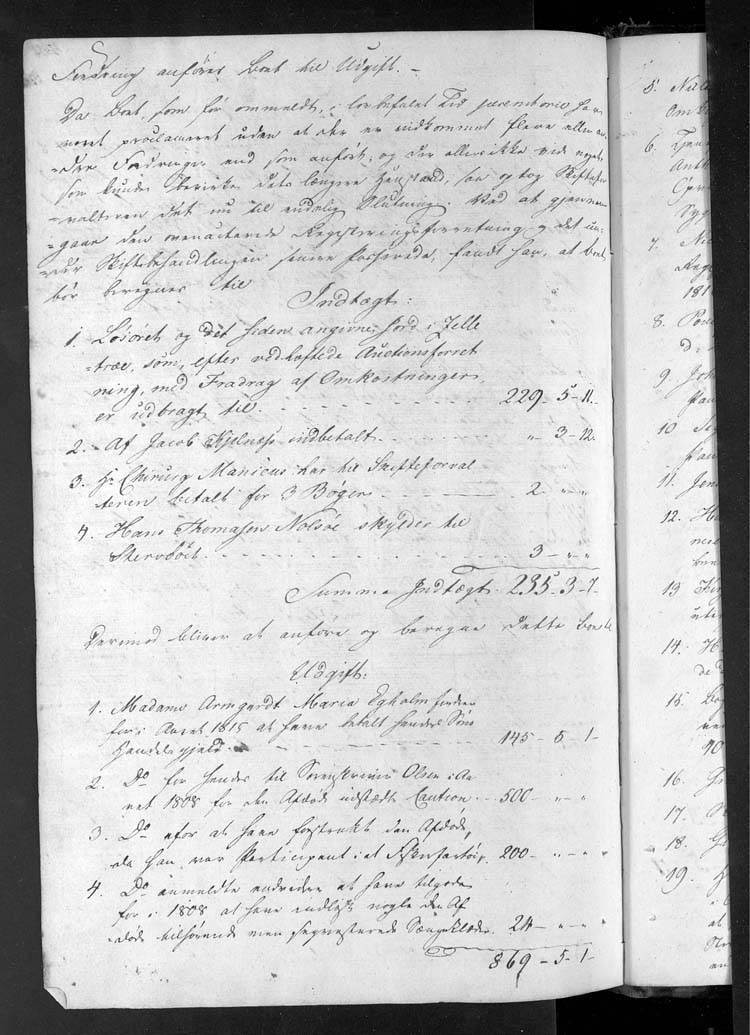 Fordring anføres Boet til Udgift. -
Da Boet, som før ommeldt, i lovbefalet Tid peremtorie har
været proclameret uden at der er indkommet flere eller an-
-dre Fordringer end som anført, og der ellers ikke var noget
som kunde bevirke dets længere Henstand, saa optog Skiftefor-
-valteren det nu til endelig Slutning. Ved at gjennem-
-gaae den ovenciterede Registreringsforretning og det un-
-der Skiftebehandlingen senere Passerede, fandt han, at Boet
bør beregnes til
Indtægt:
1. Løsøret og det heden angivne Jord i Selle-
-træe, som, efter vedhæftede Auctionsforret
ning, med Fradrag af Omkostninger,
er udbragt til - - - 229 - 5 - 11.
2. Af Jacob Kjelnæs indbetalt - - - " - 3 - 12.
3. Hr Chirurg Manicus har til Skifteforval
teren betalt for 3 Bøger - - - 2 " - "
4. Hans Thomasen Nolsøe skylder til
Stervboet - - - 3 - " - "
Summa Indtægt. 235 - 3 - 7 -
Derimod bliver at anføre og beregne dette Boe til
Udgift:
1. Madame Armgardt Maria Egholm fordrer
for i Aaret 1815 at have betalt hendes Søns
Handelsgjeld - - - 145 - 5 - 1 -
2. Do for hendes til Sorenskriver Olsen i Aa
ret 1808 for den Afdøde udstædte Caution - 500 - " - "
3. Do efor at have forstrakt den Afdøde,
da han var Participant i et Fiskerfartøi, 200 - " - "
4. Do anmeldte endvidere at have tilgode
for i 1808 at have indløst nogle den Af
døde tilhørende men sequestrerede Sængklæder 24 - " - "
869 - 5 - 1 -
5. Niel
Omk
6. Tjen
Anth
Syg
7. Nie
181
8. Pou
9. Joh
10
11. Jen
12. H
13
14. H
de
15.
40
16. G
17.
18. G
19.